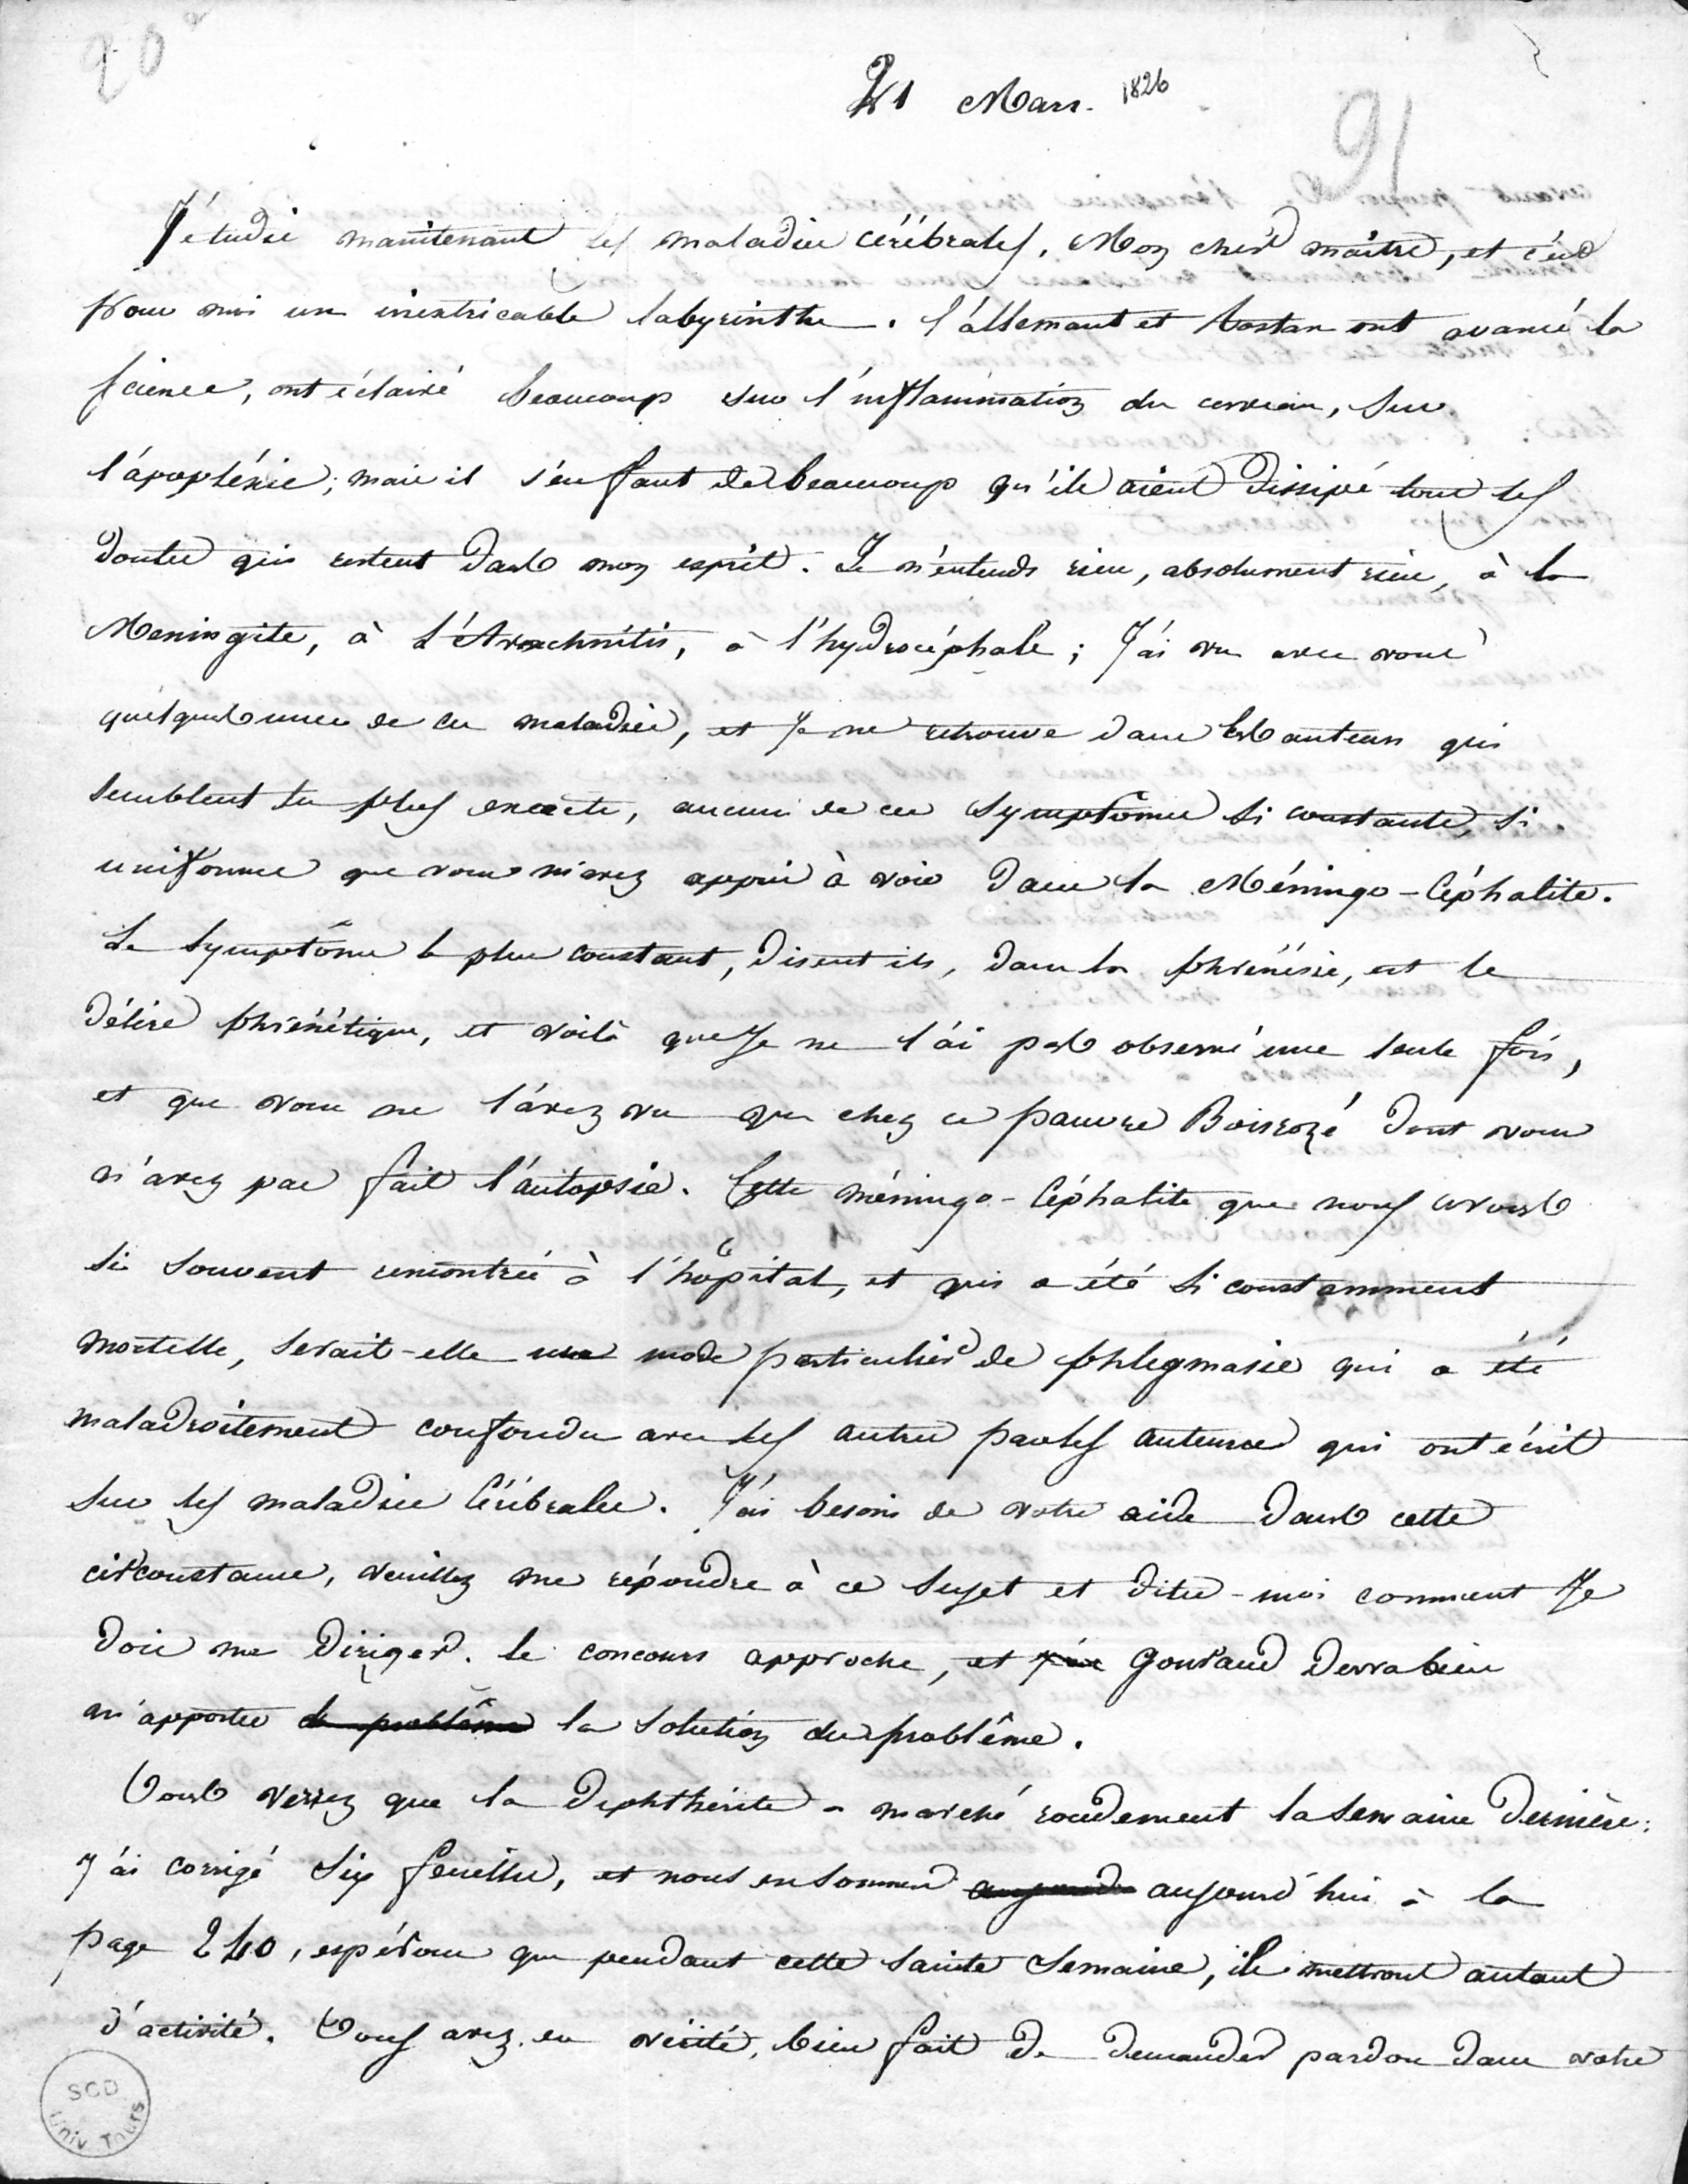 20
21 Mars. 1826
91
J'étudie maintenant les maladies cérébrales, Mon cher maître, et c'est
pour moi un inextricable labyrinthe. l'allemant et Rostan ont avancé la
science, ont éclairé beaucoup sur l'inflammation du cerveau, sur
l'apoplexie; mais il s'en faut de beaucoup qu'ils aient dissipé tous les
doutes qui restent dans mon esprit. Je n'entends rien, absolument rien, à la
Meningite, à L'Arachnitis, à l'hydrocéphale; J'ai vu avec vous
quelques unes de ces maladies, et Je ne retrouve dans les auteurs qui
semblent les plus exacts, aucun de ces symptômes si constants, si
uniformes que vous m'avez appris à voir dans la Méningo-Céphalite.
Le symptôme le plus constant, disent ils, dans la phrénésie, est le
délire phrénétique, et voilà que Je ne l'ai pas observé une seule fois,
et que vous ne l'avez vu que chez ce pauvre Boisrozé dont vous
n'avez pas fait l'autopsie. Cette méningo-Céphalite que nous avons
si souvent rencontrée à l'hôpital, et qui a été si constamment
mortelle, serait-elle un mode particulier de phlegmasie qui a été
maladroitement confondu avec les autres par les auteurs qui ont écrit
sur les maladies Cérébrales. J'ai besoin de votre aide dans cette
circonstance, veuillez me répondre à ce sujet et dites-moi comment Je
dois me diriger. le concours approche, et Gouraud devra bien
m'apporter du problême la solution du problême.
Vous verrez que la Diphthérite a marché rondement la semaine dernière:
J'ai corrigé six feuilles, et nous en sommes aujourd'hui à la
page 240, espérons que pendant cette sainte semaine, ils mettront autant
d'activité. Vous avez, en vérité, bien fait de demander pardon dans votre
SCD
Univ Tours